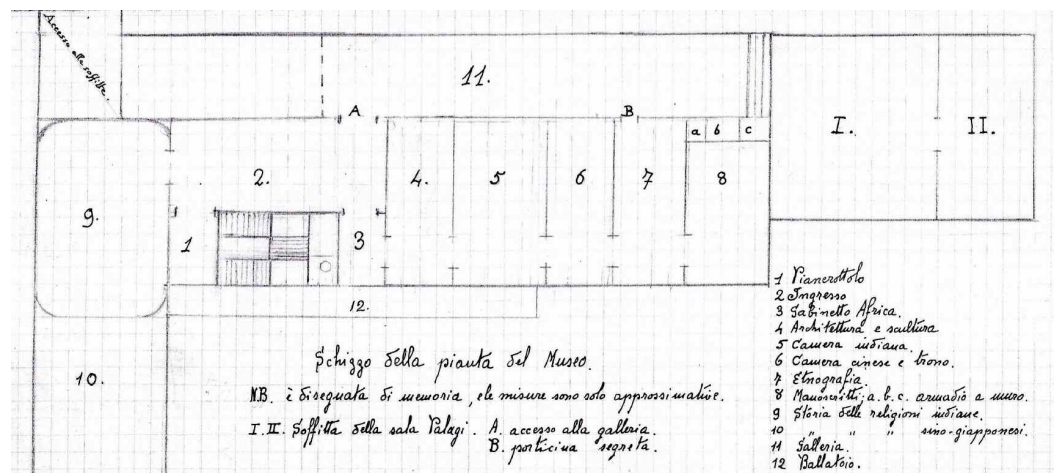 Accesso alla soffitta.
11.
A
B
I.
II.
a b c
2.
4.
5
6
7
8
9.
1
3
12.
10.
Schizzo della pianta del Museo.
N.B. è disegnata di memoria, e le misure sono solo approssimative.
I. II. Soffitta della sala Palagi. A. accesso alla galleria.
B. porticina segreta.
1 Pianerottolo
2 Ingresso
3 Gabinetto Africa.
4 Architettura e scultura
5 Camera indiana.
6 Camera cinese e trono.
7 Etnografia.
8 Manoscritti; a. b. c. armadio a muro.
9 Storia delle religioni indiane.
10 " " " sino-giapponesi.
11 Galleria.
12 Ballatoio.